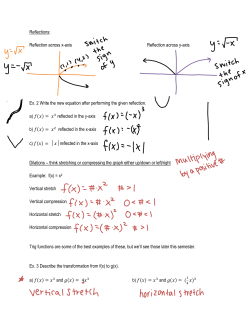 Reflections:
Reflection across x-axis
Reflection across y-axis
y=√x
switch the sign of y
y=-√x
y=√-x
switch the sign of x
Ex. 2 Write the new equation after performing the given reflection.
a) f(x) = x³ reflected in the y-axis f(x)=(-x)³
b) f(x) = x² reflected in the x-axis f(x)=-(x)²
c) f(x) = |x| reflected in the x-axis f(x)=-|x|
Dilations – think stretching or compressing the graph either up/down or left/right
multiplying by a positive #
Example: f(x) = x²
Vertical stretch f(x)=#·x² #>1
Vertical compression f(x)=#·x² 0<#<1
Horizontal stretch f(x)=(#x)² 0<#<1
Horizontal compression f(x)=(#·x)² #>1
Trig functions are some of the best examples of these, but we'll see those later this semester.
Ex. 3 Describe the transformation from f(x) to g(x).
vertical stretch
horizontal stretch